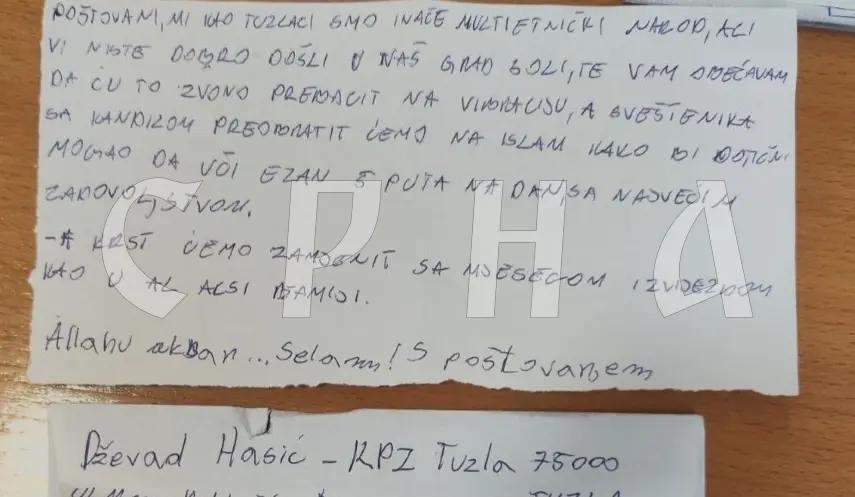 POŠTOVANI, MI KAO TUZLACI SMO INAČE MULTIETNIČKI NAROD, ALI
VI NISTE DOBRO DOŠLI U NAŠ GRAD SOLI, TE VAM OBEĆAVAM
DA ĆU TO ZVONO PREBACIT NA VIBRACIJU, A SVEŠTENIKA
SA KANDILOM PREOBRATIT ĆEMO NA ISLAM KAKO BI DOTIČNI
MOGAO DA UČI EZAN 5 PUTA NA DAN, SA NAJVEĆIM
ZADOVOLJSTVOM.
- A KRST ĆEMO ZAMJENIT SA MJESECOM I ZVIJEZDOM
KAO U AL AKSI DŽAMIJI.
Allahu akbar... Selamm! S poštovanjem
СРНА
Dževad Hasić - KPZ Tuzla 75000
TUZLA